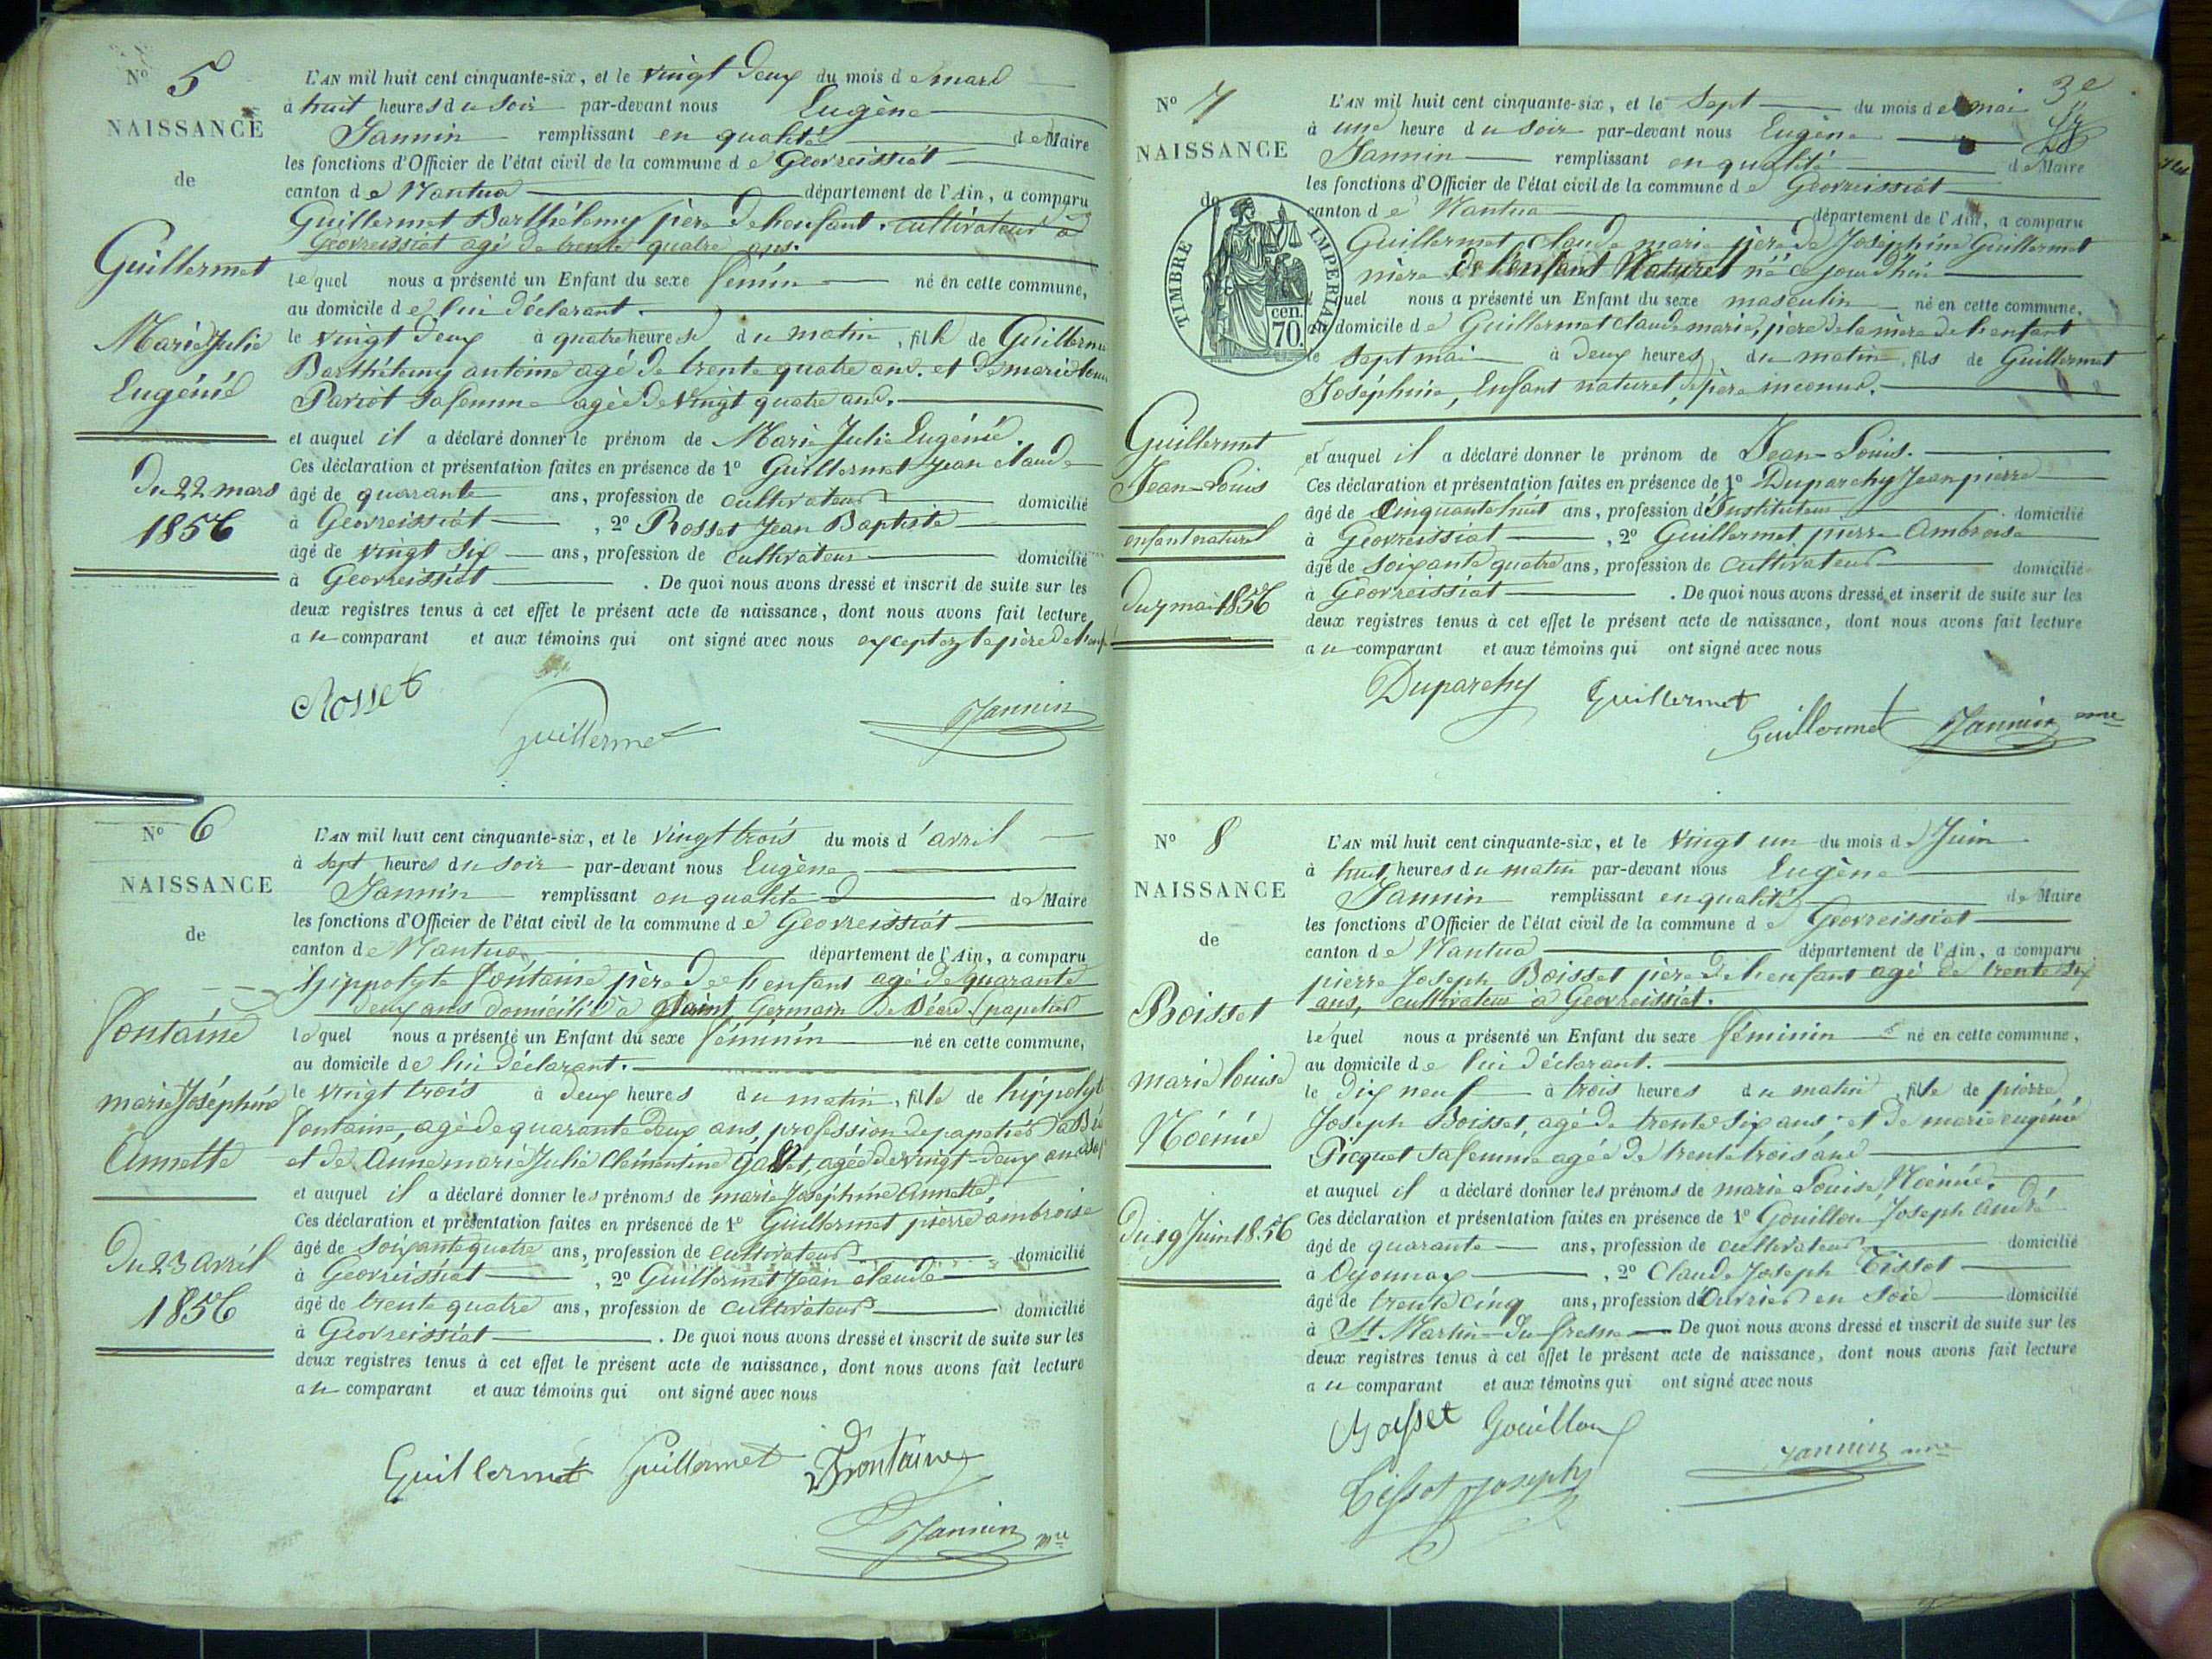 N° 5
NAISSANCE
de
Guillermet
Marie Julie
Eugénie
Du 22 mars
1856
L'AN mil huit cent cinquante-six, et le vingt deux du mois de mars
à huit heures du soir par-devant nous Eugène
Jannin remplissant en qualité de Maire
les fonctions d'Officier de l'état civil de la commune de Geovreissiat
canton de Nantua département de l'Ain, a comparu
Guillermet Barthélemy père de l'enfant, cultivateur à
Geovreissiat agé de trente quatre ans.
lequel nous a présenté un Enfant du sexe fémin né en cette commune,
au domicile de lui déclarant.
le vingt deux à quatre heures du matin, fille de Guillerme
Barthélemy antoine agé de trente quatre ans. et de marie
Pariot sa femme agée de vingt quatre ans.
et auquel il a déclaré donner le prénom de Marie Julie Eugénie.
Ces déclaration et présentation faites en présence de 1° Guillermet Jean claude
âgé de quarante ans, profession de cultivateur domicilié
à Geovreissiat, 2° Rosset Jean Baptiste
âgé de vingt six ans, profession de cultivateur domicilié
à Geovreissiat. De quoi nous avons dressé et inscrit de suite sur les
deux registres tenus à cet effet le présent acte de naissance, dont nous avons fait lecture
au comparant et aux témoins qui ont signé avec nous exceptez le père de l'enf
Rosset
Guillermet
Jannin
N° 6
NAISSANCE
de
fontaine
marie Joséphine
Annette
Du 23 avril
1856
L'AN mil huit cent cinquante-six, et le vingt trois du mois d'avril
à sept heures du soir par-devant nous Eugène
Jannin remplissant en qualité d de Maire
les fonctions d'Officier de l'état civil de la commune de Geovreissiat
canton de Nantua département de l'Ain, a comparu
hippolyte fontaine père de l'enfant agé de quarante
deux ans domicilié à Saint Germain de Béard. papetier
lequel nous a présenté un Enfant du sexe féminin né en cette commune,
au domicile de lui déclarant.
le vingt trois à deux heures du matin, fille de hippolyte
fontaine, agé de quarante deux ans, profession de papetier à
et de Anne marie Julie Clémentine gallet, agée de vingt-deux ans
et auquel il a déclaré donner les prénoms de marie Joséphine Annette,
Ces déclaration et présentation faites en présence de 1° Guillermet pierre ambroise
âgé de soixante quatre ans, profession de cultivateur domicilié
à Geovreissiat, 2° Guillermet Jean claude
âgé de trente quatre ans, profession de cultivateur domicilié
à Geovreissiat. De quoi nous avons dressé et inscrit de suite sur les
deux registres tenus à cet effet le présent acte de naissance, dont nous avons fait lecture
au comparant et aux témoins qui ont signé avec nous
Guillermet Guillermet Fontaine
Jannin mre
3e
N° 7
NAISSANCE
de
TIMBRE IMPERIAL
70 cen.
Guillermet
Jean-Louis
enfant naturel
du 7 mai 1856
L'AN mil huit cent cinquante-six, et le sept du mois de mai
à une heure du soir par-devant nous Eugène
Jannin remplissant en qualité de Maire
les fonctions d'Officier de l'état civil de la commune de Geovreissiat
canton de Nantua département de l'Ain, a comparu
Guillermet claude marie père de Joséphine Guillermet
mère de l'enfant Naturel né ce jourd'hui
lequel nous a présenté un Enfant du sexe masculin né en cette commune,
au domicile de Guillermet claude marie, père de la mère de l'enfant
le sept mai à deux heures du matin, fils de Guillermet
Joséphine, Enfant naturel, père inconnu.
et auquel il a déclaré donner le prénom de Jean-Louis.
Ces déclaration et présentation faites en présence de 1° Duparchy Jean pierre
âgé de cinquante huit ans, profession d'Instituteur domicilié
à Geovreissiat, 2° Guillermet pierre Ambroise
âgé de soixante quatre ans, profession de cultivateur domicilié
à Geovreissiat. De quoi nous avons dressé et inscrit de suite sur les
deux registres tenus à cet effet le présent acte de naissance, dont nous avons fait lecture
au comparant et aux témoins qui ont signé avec nous
Duparchy Guillermet
Guillermet Jannin mre
N° 8
NAISSANCE
de
Boisset
marie louise
Noémie
Du 19 Juin 1856
L'AN mil huit cent cinquante-six, et le vingt un du mois de Juin
à huit heures du matin par-devant nous Eugène
Jannin remplissant en qualité de Maire
les fonctions d'Officier de l'état civil de la commune de Geovreissiat
canton de Nantua département de l'Ain, a comparu
pierre Joseph Boisset père de l'enfant agé de trente six
ans, cultivateur à Geovreissiat.
lequel nous a présenté un Enfant du sexe féminin né en cette commune,
au domicile de lui déclarant.
le dix neuf à trois heures du matin, fille de pierre
Joseph Boisset, agé de trente six ans et de marie eugénie
Picquet sa femme agée de trente trois ans
et auquel il a déclaré donner les prénoms de marie Louise Noémie.
Ces déclaration et présentation faites en présence de 1° Gouillou Joseph André
âgé de quarante ans, profession de cultivateur domicilié
à Oyonnax, 2° Claude Joseph Tissot
âgé de trente cinq ans, profession d'Ouvrier en soie domicilié
à St Martin-du-fresne De quoi nous avons dressé et inscrit de suite sur les
deux registres tenus à cet effet le présent acte de naissance, dont nous avons fait lecture
au comparant et aux témoins qui ont signé avec nous
Boisset Gouillou
Tissot Joseph
Jannin mre